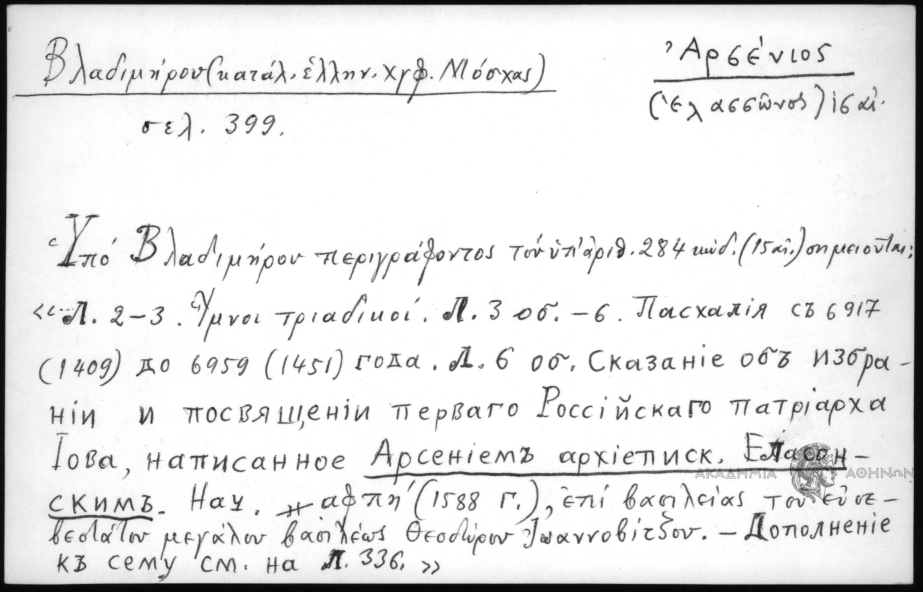 Βλαδιμήρου (κατάλ. ἑλλην. χγφ. Μόσχας)
σελ. 399.
Ἀρσένιος
(Ἐλασσῶνος) 16 αἰ.
Ὑπό Βλαδιμήρου περιγράφοντος τόν ὑπ' ἀριθ. 284 κώδ. (15 αἰ.) σημειοῦται:
«... Л. 2-3. Ὕμνοι τριαδικοί. Л. 3 об. - 6. Пасхалія съ 6917
(1409) до 6959 (1451) года. Л. 6 об. Сказаніе объ избра-
ніи и посвященіи перваго Россійскаго патріарха
Іова, написанное Арсеніемъ архіеписк. Еласон-
скимъ. Нач. ͵αφπή (1588 г.), ἐπί βασιλείας τοῦ εὐσε-
βεστάτου μεγάλου βασιλέως Θεοδώρου Ἰωαννοβίτζου. - Дополненіе
къ сему см. на Л. 336. »
ΑΚΑΔΗΜΙΑ ΑΘΗΝΩΝ